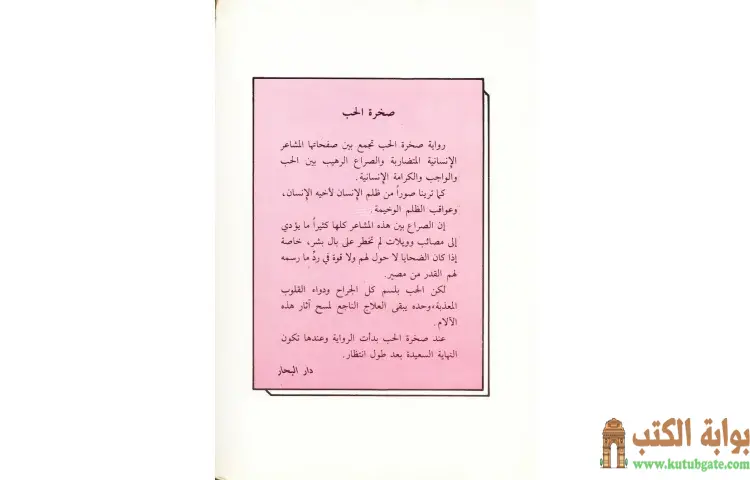 صخرة الحب
رواية صخرة الحب تجمع بين صفحاتها المشاعر
الإنسانية المتضاربة والصراع الرهيب بين الحب
والواجب والكرامة الإنسانية.
كما ترينا صوراً من ظلم الإنسان لأخيه الإنسان،
وعواقب الظلم الوخيمة.
إن الصراع بين هذه المشاعر كلها كثيراً ما يؤدي
إلى مصائب وويلات لم تخطر على بال بشر، خاصة
إذا كان الضحايا لا حول لهم ولا قوة في ردّ ما رسمه
لهم القدر من مصير.
لكن الحب بلسم كل الجراح ودواء القلوب
المعذبة،وحده يبقى العلاج الناجع لمسح آثار هذه
الآلام.
عند صخرة الحب بدأت الرواية وعندها تكون
النهاية السعيدة بعد طول انتظار.
دار البحار
بوابة الكتب
www.kutubgate.com